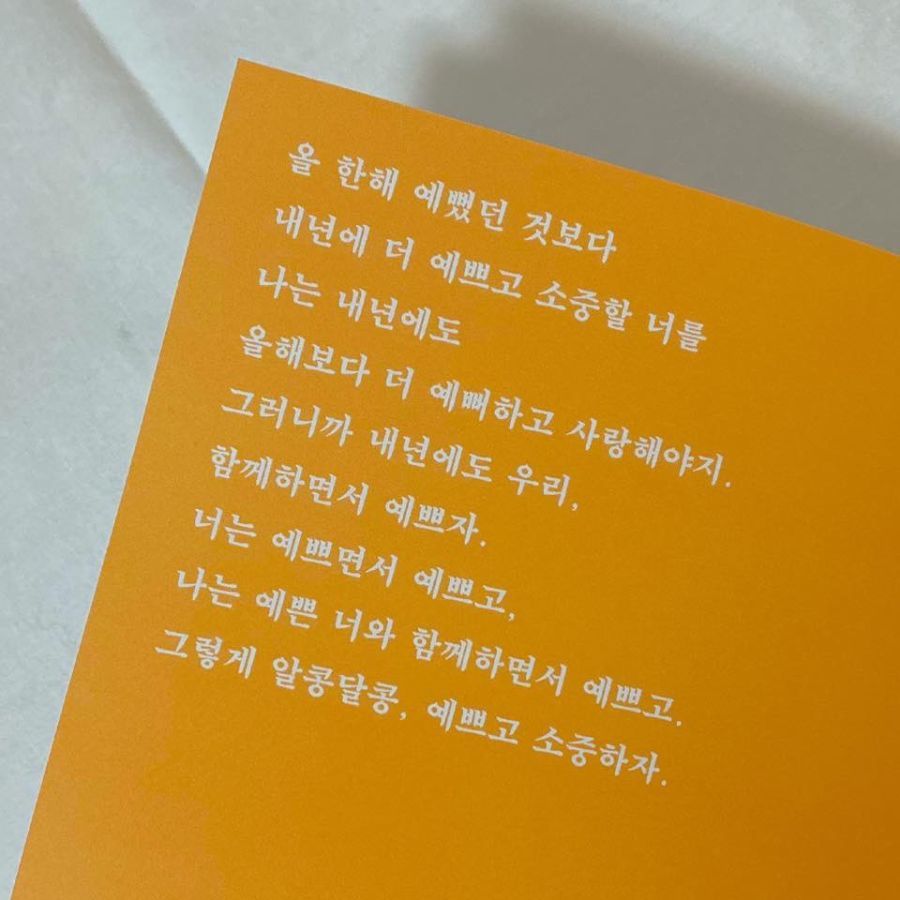 올 한해 예뻤던 것보다
내년에 더 예쁘고 소중할 너를
나는 내년에도
올해보다 더 예뻐하고 사랑해야지.
그러니까 내년에도 우리,
함께하면서 예쁘자.
너는 예쁘면서 예쁘고,
나는 예쁜 너와 함께하면서 예쁘고.
그렇게 알콩달콩, 예쁘고 소중하자.